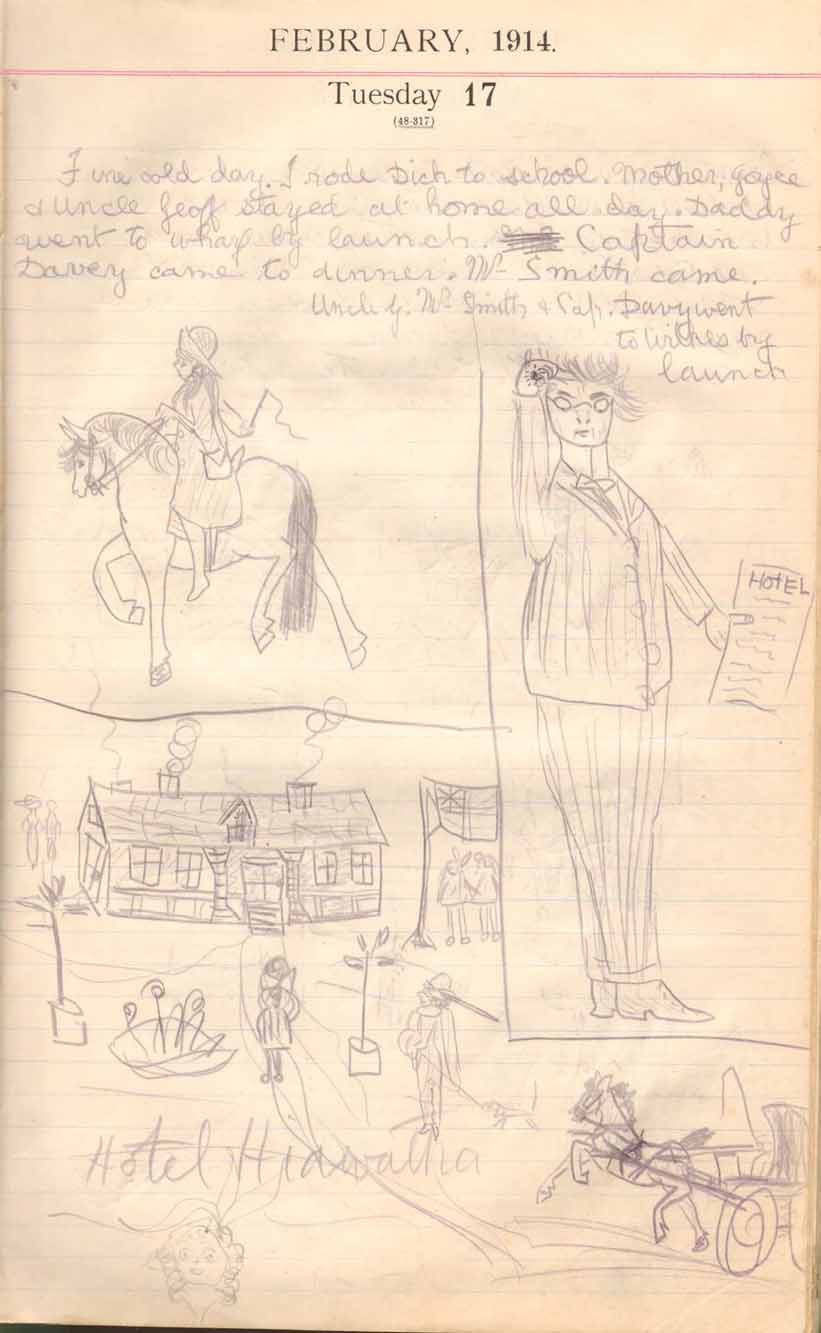 FEBRUARY, 1914.
Tuesday 17
(48-317)
Fine cold day. I rode Dick to school. Mother, Joyce
& Uncle Geoff stayed at home all day. Daddy
went to wharf by launch. Captain
Davey came to dinner. Mr Smith came.
Uncle G. Mr Smith & Cap. Davy went
to Wilkes by
launch
HOTEL
Hotel Hiawatha